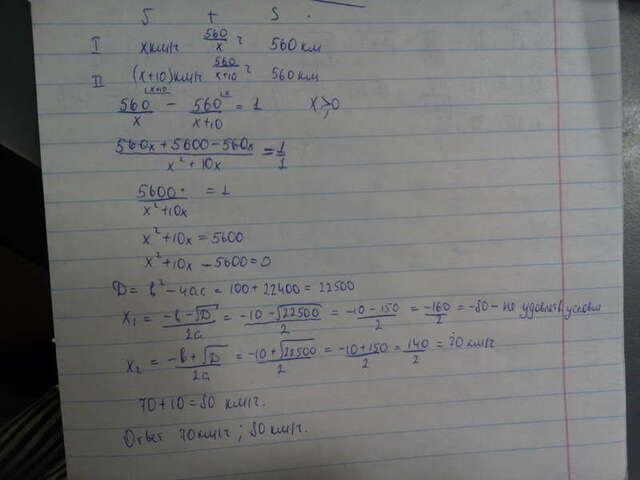 V t S
I x км/ч 560/x ч 560 км
II (x+10) км/ч 560/x+10 ч 560 км
560/x - 560/x+10 = 1 x>0
560x + 5600 - 560x / x² + 10x = 1/1
5600 / x² + 10x = 1
x² + 10x = 5600
x² + 10x - 5600 = 0
D = b² - 4ac = 100 + 22400 = 22500
x₁ = -b - √D / 2a = -10 - √22500 / 2 = -10 - 150 / 2 = -160 / 2 = -80 - не удовлетв. услов
x₂ = -b + √D / 2a = -10 + √22500 / 2 = -10 + 150 / 2 = 140 / 2 = 70 км/ч
70 + 10 = 80 км/ч.
Ответ 70 км/ч ; 80 км/ч.